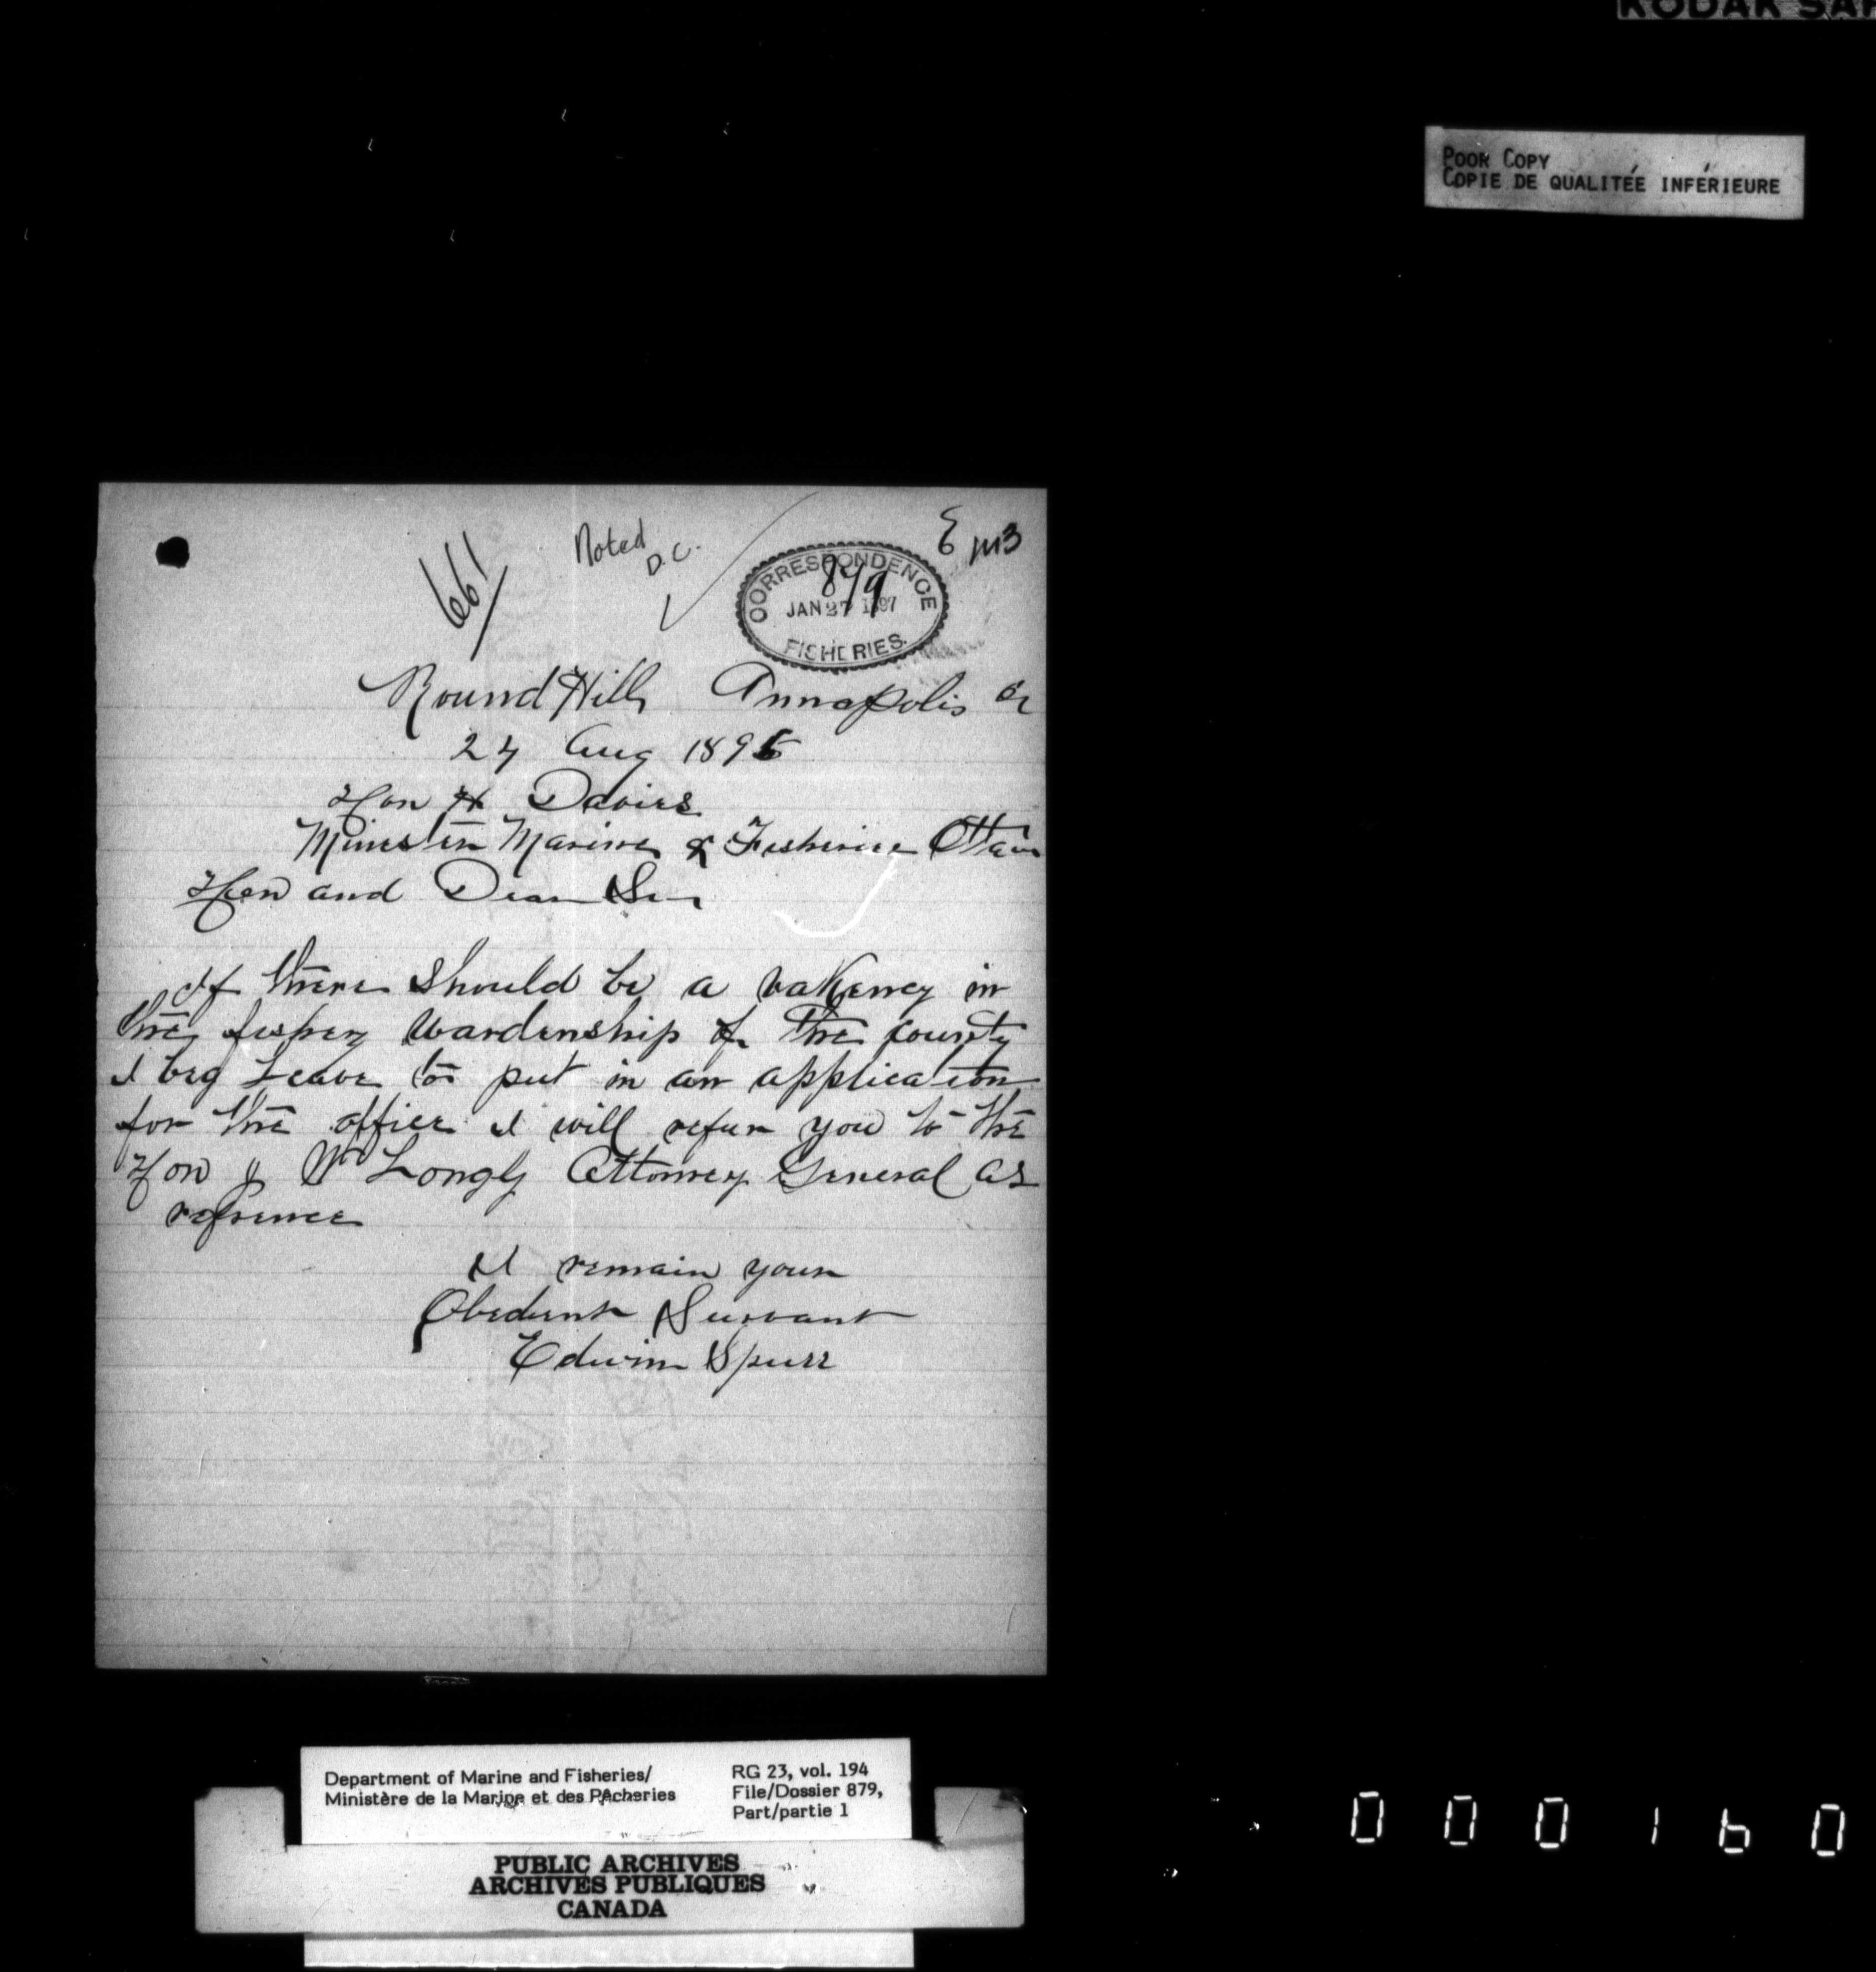 KODAK SAF
POOR COPY
COPIE DE QUALITÉE INFÉRIEURE
661
Noted
D.C.
CORRESPONDENCE
879
JAN 27 1897
FISHERIES.
Round Hill Annapolis Co
24 Aug 1896
Hon H Davies
Minister Marine & Fisheries Ottaw
Hon and Dear Sir
If there should be a vakency in
the fishery wardenship of the county
I beg Leave to put in an application
for the office I will refur you to the
Hon J W Longly Attorney General as
refrence
I remain your
Obedient Survant
Edwin Spurr
Department of Marine and Fisheries/
Ministère de la Marine et des Pêcheries
RG 23, vol. 194
File/Dossier 879,
Part/partie 1
PUBLIC ARCHIVES
ARCHIVES PUBLIQUES
CANADA
000160